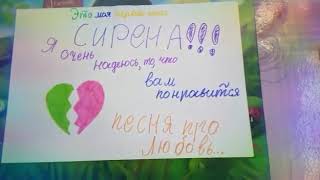 Это моя первая песня
СИРЕНА!!!
Я очень
надеюсь, то, что
вам
понравится
песня про
любовь...